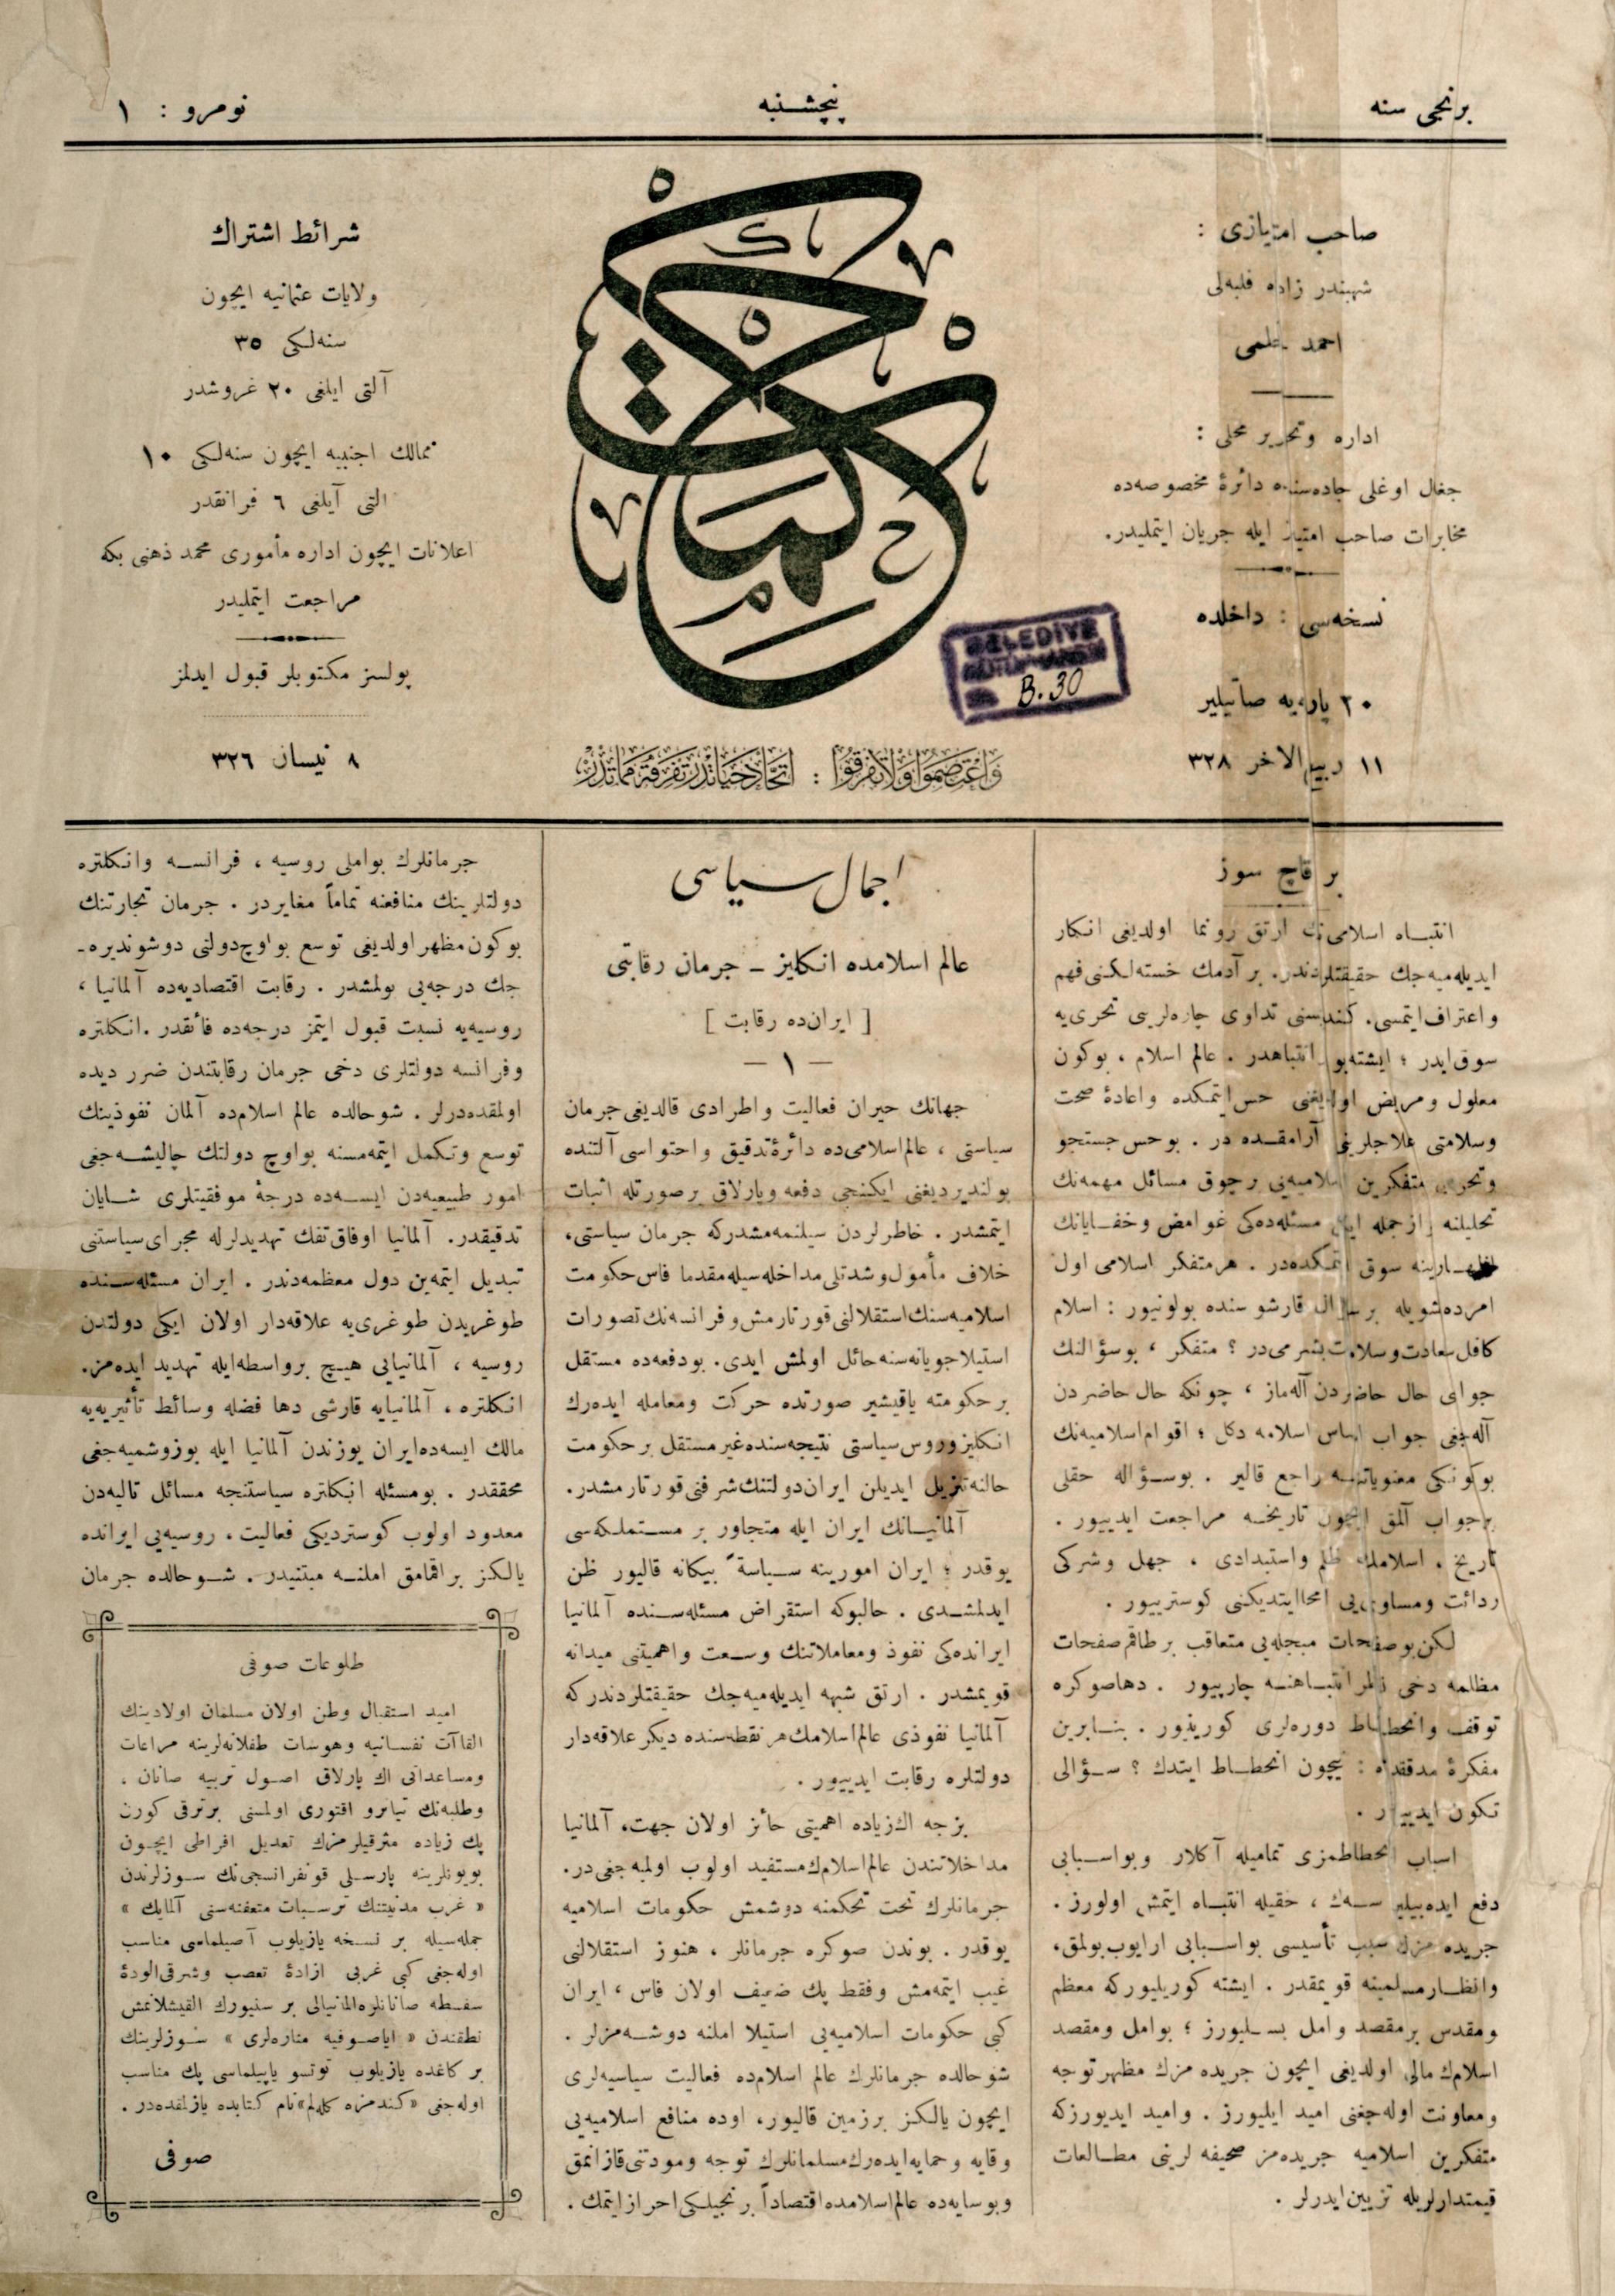 برنجی سنه
پنچشنبه
نومرو : ١
صاحب امتیازی :
شهبندر زاده فلبه‌لی
احمد حلمی
اداره وتحریر محلی :
جغال اوغلی جاده‌سنده دائرهٔ مخصوصه‌ده
مخابرات صاحب امتیاز ایله جریان ایتملیدر.
نسخه‌سی : داخلده
٢٠ پاره‌یه صاتیلیر
١١ ربیع الاخر ٣٢٨
حکمت
BELEDİYE
B.30
وَاعْتَصِمُوا وَلَاتَفَرَّقُوا : اتحاد حیاتدر تفرقه مماتدر
شرائط اشتراك
ولایات عثمانیه ایچون
سنه‌لکی ٣٥
آلتی ایلغی ٢٠ غروشدر
ممالك اجنبیه ایچون سنه‌لکی ١٠
التی آیلغی ٦ فرانقدر
اعلانات ایچون اداره مأموری محمد ذهنی بکه
مراجعت ایتملیدر
پولسز مکتوبلر قبول ایدلمز
٨ نیسان ٣٢٦
بر قاچ سوز
انتباه اسلامی‌نك ارتق رونما اولدیغی انکار
ایدیله‌میه‌جك حقیقتلردندر. بر آدمك خسته‌لکنی فهم
واعتراف ایتمسی. کندیسنی تداوی چاره‌لرینی تحری‌یه
سوق ایدر ؛ ایشته بو انتباهدر . عالم اسلام ، بوکون
معلول ومریض اولدیغنی حس ایتمکده واعادهٔ صحت
وسلامتی علاجلرینی آرامقده در . بو حس جستجو
وتحری متفکرین اسلامیه‌یی برچوق مسائل مهمه‌نك
تحلیلنه ازجمله ایکی مسئله‌ده‌کی غوامض وخفایانك
اظهارینه سوق ایتمکده‌در . هر متفکر اسلامی اول
امرده شویله بر سؤال قارشوسنده بولونیور : اسلام
کافل سعادت وسلامت بشرمی‌در ؟ متفکر ، بو سؤالنك
جوابی حال حاضردن آله‌ماز ، چونکه حال حاضردن
آله‌جغی جواب اساس اسلامه دکل ؛ اقوام اسلامیه‌نك
بوکونکی معنویاتنه راجع قالیر . بو سؤاله حقلی
برجواب آلمق ایچون تاریخه مراجعت ایدییور .
تاریخ ، اسلامك ظلم واستبدادی ، جهل وشرکی
ردائت ومساوی‌یی امحا ایتدیکنی کوسترییور .
لکن بو صفحات مبجله‌یی متعاقب بر طاقم صفحات
مظالمه دخی نظر انتباهنه چارپیور . دها صوکره
توقف وانحطاط دوره‌لری کوریزور . بنابرین
مفکرهٔ مدققده : نیچون انحطاط ایتدك ؟ سؤالی
تکون ایدییور .
اسباب انحطاطمزی تمامیله آکلار وبواسبابی
دفع ایده‌بیلیر سه‌ك ، حقیله انتباه ایتمش اولورز .
جریده مزك سبب تأسیسی بواسبابی ارایوب بولمق،
وانظار مسلمینه قویمقدر . ایشته کوریلیورکه معظم
ومقدس برمقصد وامل بسلیورز ؛ بوامل ومقصد
اسلامك مالی اولدیغی ایچون جریده مزك مظهر توجه
ومعاونت اوله‌جغنی امید ایلیورز . وامید ایدییورزکه
متفکرین اسلامیه جریده‌مز صحیفه لرینی مطالعات
قیمتدارلریله تزیین ایدرلر .
اجمال سیاسی
عالم اسلامده انکلیز ـ جرمان رقابتی
[ ایران‌ده رقابت ]
— ١ —
جهانك حیران فعالیت واطرادی قالدیغی جرمان
سیاستی ، عالم اسلامی‌ده دائرهٔ تدقیق واحتواسی آلتنده
بولندیردیغنی ایکنجی دفعه وپارلاق برصورتله اثبات
ایتمشدر . خاطرلردن سیلنمه‌مشدرکه جرمان سیاستی،
خلاف مأمول وشدتلی مداخله‌سیله مقدما فاس حکومت
اسلامیه‌سنك استقلالنی قورتارمش وفرانسه‌نك تصورات
استیلاجویانه‌سنه حائل اولمش ایدی. بودفعه‌ده مستقل
برحکومته یاقیشیر صورتده حرکت ومعامله ایده‌رك
انکلیز وروس سیاستی نتیجه‌سنده غیر مستقل بر حکومت
حالنه تنزیل ایدیلن ایران دولتنك شرفنی قورتارمشدر.
آلمانیانك ایران ایله متجاور بر مستملکه‌سی
یوقدر ؛ ایران امورینه سیاسةً بیکانه قالیور ظن
ایدلمشدی . حالبوکه استقراض مسئله‌سنده آلمانیا
ایرانده‌کی نفوذ ومعاملاتنك وسعت واهمیتنی میدانه
قویمشدر . ارتق شبهه ایدیله‌میه‌جك حقیقتلردندرکه
آلمانیا نفوذی عالم اسلامك هر نقطه‌سنده دیکر علاقه‌دار
دولتلره رقابت ایدییور .
بزجه اك زیاده اهمیتی حائز اولان جهت، آلمانیا
مداخلاتندن عالم اسلامك مستفید اولوب اولمیه‌جغی‌در.
جرمانلرك تحت تحکمنه دوشمش حکومات اسلامیه
یوقدر . بوندن صوکره جرمانلر ، هنوز استقلالنی
غیب ایتمه‌مش وفقط پك ضعیف اولان فاس ، ایران
کبی حکومات اسلامیه‌یی استیلا املنه دوشه‌مزلر .
شوحالده جرمانلرك عالم اسلام‌ده فعالیت سیاسیه‌لری
ایچون یالکز برزمین قالیور، اوده منافع اسلامیه‌یی
وقایه وحمایه ایده‌رك مسلمانلرك توجه ومودتنی قازانمق
وبوسایه‌ده عالم اسلامده اقتصاداً برنجیلکی احراز ایتمك .
جرمانلرك بواملی روسیه ، فرانسه وانکلتره
دولتلرینك منافعنه تماماً مغایردر . جرمان تجارتنك
بوکون مظهر اولدیغی توسع بواوچ دولتی دوشوندیره‌ـ
جك درجه‌یی بولمشدر . رقابت اقتصادیه‌ده آلمانیا ،
روسیه‌یه نسبت قبول ایتمز درجه‌ده فائقدر .انکلتره
وفرانسه دولتلری دخی جرمان رقابتندن ضرر دیده
اولمقده‌درلر . شوحالده عالم اسلام‌ده آلمان نفوذینك
توسع وتکمل ایتمه‌مسنه بواوچ دولتك چالیشه‌جغی
امور طبیعیه‌دن ایسه‌ده درجهٔ موفقیتلری شایان
تدقیقدر. آلمانیا اوفاق تفك تهدیدلرله مجرای سیاستنی
تبدیل ایتمه‌ین دول معظمه‌دندر . ایران مسئله‌سنده
طوغریدن طوغری‌یه علاقه‌دار اولان ایکی دولتدن
روسیه ، آلمانیایی هیچ برواسطه‌ایله تهدید ایده‌مز.
انکلتره ، آلمانیایه قارشی دها فضله وسائط تأثیریه‌یه
مالك ایسه‌ده ایران یوزندن آلمانیا ایله بوزوشمیه‌جغی
محققدر . بومسئله انکلتره سیاستنجه مسائل تالیه‌دن
معدود اولوب کوستردیکی فعالیت، روسیه‌یی ایرانده
یالکز براقمامق املنه مبتنیدر . شوحالده جرمان
طلوعات صوفی
امید استقبال وطن اولان مسلمان اولادینك
القاآت نفسانیه وهوسات طفلانه‌لرینه مراعات
ومساعداتی اك پارلاق اصول تربیه صانان .
وطلبه‌نك تیاترو اقتوری اولمسنی برترقی کورن
پك زیاده مترقیلرمزك تعدیل افراطی ایچون
بویونلرینه پارسلی قونفرانسجی‌نك سوزلرندن
« غرب مدنیتنك ترسبات متعفنه‌سنی آلمایك »
جمله‌سیله بر نسخه یازیلوب آصیلماسی مناسب
اوله‌جغی کبی غربی ازادهٔ تعصب وشرقی الودهٔ
سفسطه صانانلره المانیالی بر سنیورك القیشلانمش
نطقندن « ایاصوفیه مناره‌لری » سوزلرینك
بر کاغده یازیلوب توتسو یاپیلماسی پك مناسب
اوله‌جغی «کندمزه کله‌لم» نام کتابده یازلمقده‌در .
صوفی